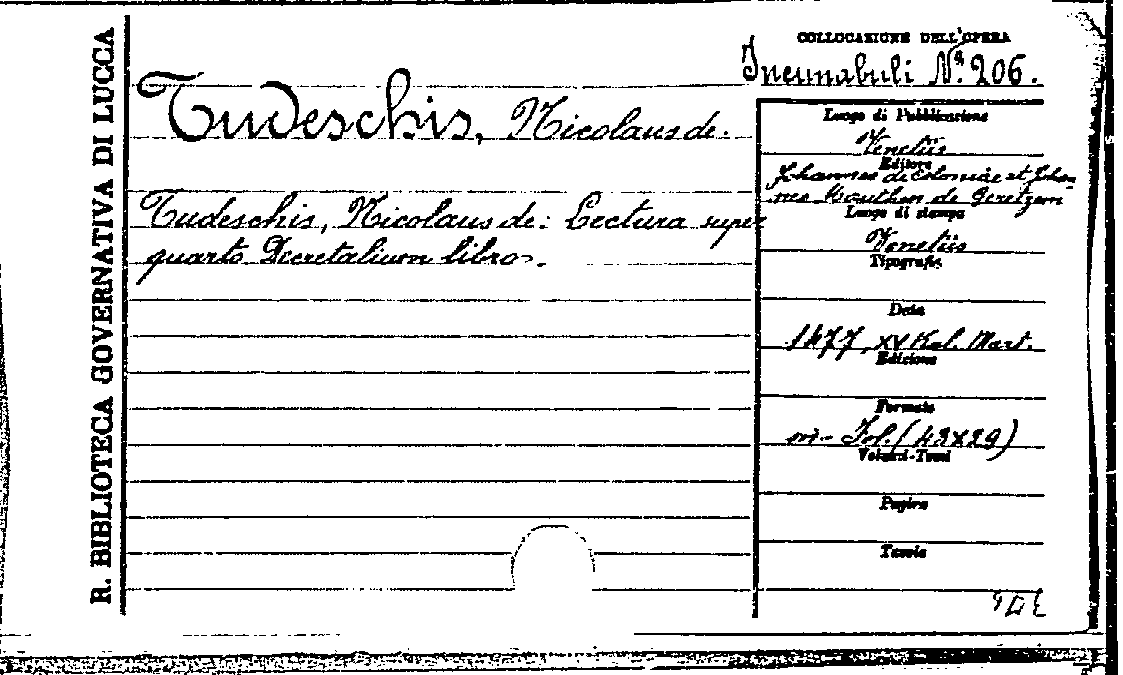 R. BIBLIOTECA GOVERNATIVA DI LUCCA
COLLOCAZIONE DELL'OPERA
Incunabuli N.º 206.
Tudeschis, Nicolaus de.
Tudeschis, Nicolaus de: Lectura super
quarto Decretalium libro.
Luogo di Pubblicazione
Venetiis
Editore
Johannes de Colonia et Johan-
nes Manthen de Geretzem
Luogo di stampa
Venetiis
Tipografia
Data
1477, XV Kal. Mart.
Edizione
Formato
in-fol. (43x29)
Volumi-Tomi
Pagine
Tavole